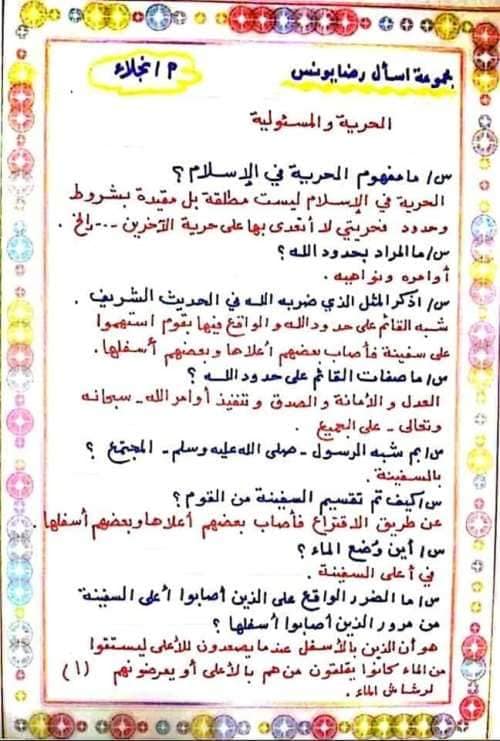 مجموعة اسأل رضا يونس
م/ نجلاء
الحرية والمسئولية
س/ ما مفهوم الحرية في الإسلام ؟
الحرية في الإسلام ليست مطلقة بل مقيدة بشروط
وحدود فحريتي لا أتعدى بها على حرية الآخرين ... إلخ .
س/ ما المراد بحدود الله ؟
أوامره ونواهيه .
س/ اذكر المثل الذي ضربه الله في الحديث الشريف .
شبه القائم على حدود الله والواقع فيها بقوم استهموا
على سفينة فأصاب بعضهم أعلاها وبعضهم أسفلها .
س/ ما صفات القائم على حدود الله ؟
العدل والأمانة والصدق وتنفيذ أوامر الله - سبحانه
وتعالى - على الجميع .
س/ بم شبه الرسول - صلى الله عليه وسلم - المجتمع ؟
بالسفينة .
س/ كيف تم تقسيم السفينة من القوم ؟
عن طريق الاقتراع فأصاب بعضهم أعلاها وبعضهم أسفلها .
س/ أين وُضع الماء ؟
في أعلى السفينة .
س/ ما الضرر الواقع على الذين أصابوا أعلى السفينة
من مرور الذين أصابوا أسفلها ؟
هو أن الذين بالأسفل عندما يصعدون للأعلى ليستقوا
من الماء كانوا يقلقون من هم بالأعلى أو يعرضونهم (١)
لرشاش الماء .